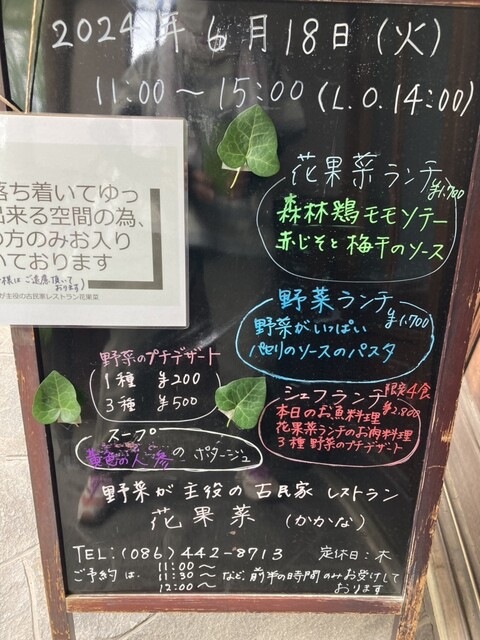 2024年6月18日(火)
11:00～15:00(L.O.14:00)
落ち着いてゆっ
出来る空間の為、
の方のみお入り
いております
様はご遠慮頂いて
おります)
が主役の古民家レストラン花果菜
花果菜ランチ
¥1,700
森林鶏モモソテー
赤じそと梅干のソース
野菜ランチ
¥1,700
野菜がいっぱい
パセリのソースのパスタ
野菜のプチデザート
1種 ¥200
3種 ¥500
シェフランチ 限定4食
¥2,800
本日のお魚料理
花果菜ランチのお肉料理
3種 野菜のプチデザート
スープ
黄色の人参のポタージュ
野菜が主役の古民家レストラン
花果菜 (かかな)
TEL:(086)442-8713 定休日:木
ご予約は、
11:00～
11:30～
12:00～
など、前半の時間のみお受けして
おります